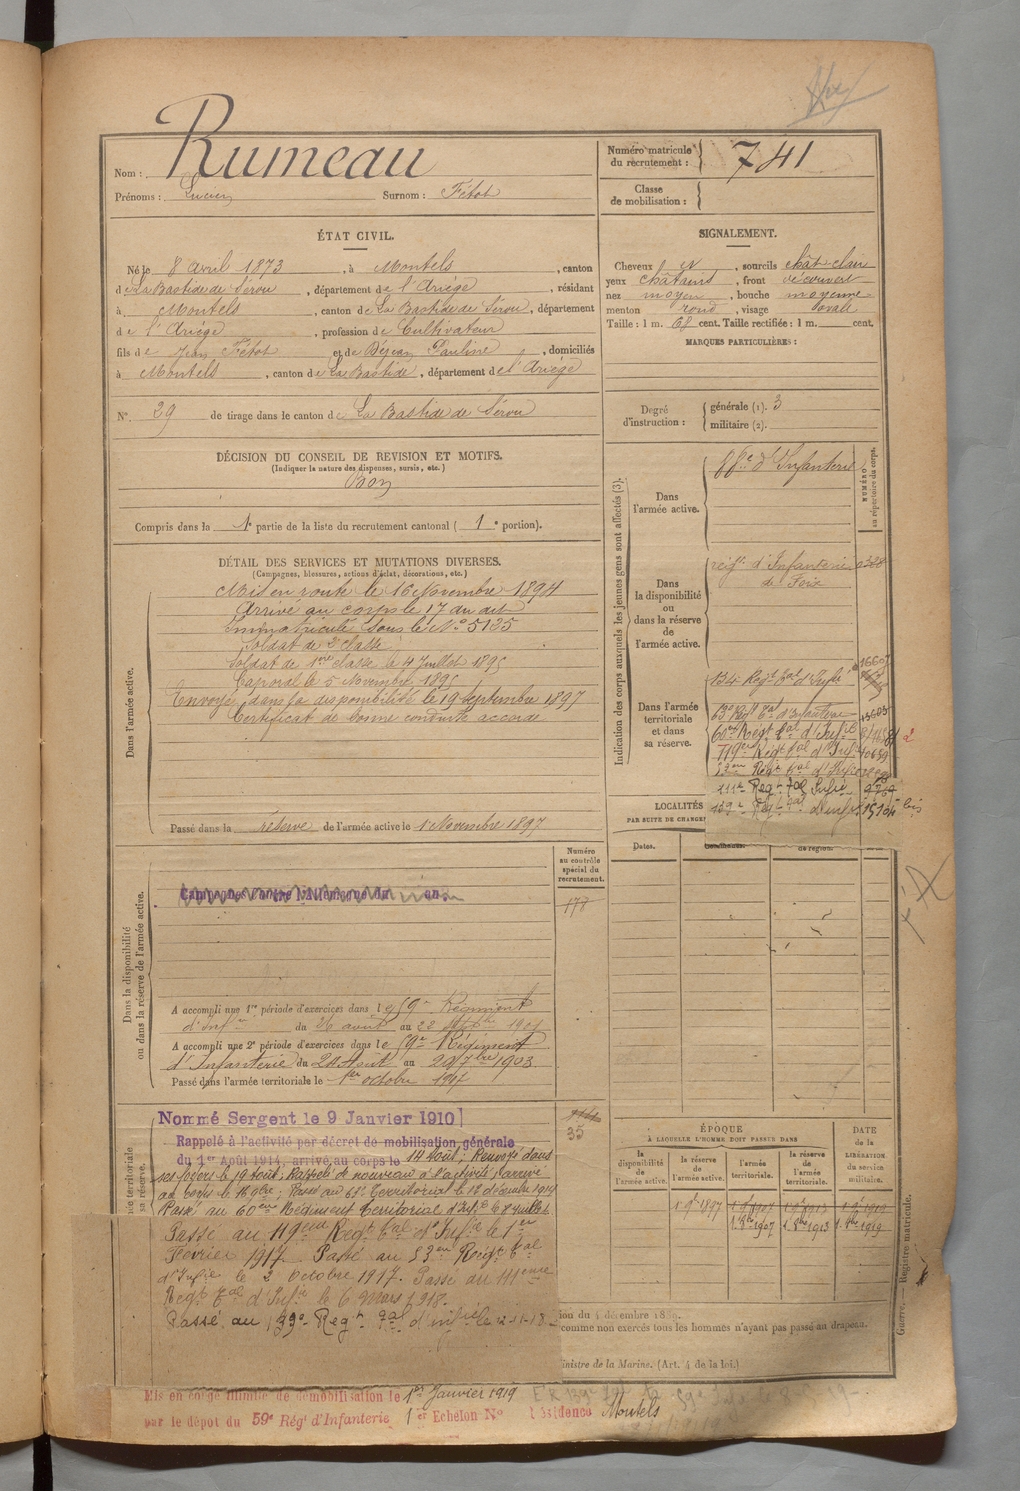 Rumeau
Nom :
Prénoms : Lucien Surnom : Fétot
Numéro matricule du recrutement : 741
Classe de mobilisation :
ÉTAT CIVIL.
Né le 8 avril 1873, à Montels, canton
de La Bastide de Sérou, département de l'Ariège, résidant
à Montels, canton de La Bastide de Sérou, département
de l'Ariège, profession de Cultivateur
fils de Jean Fétot et de Déjean Pauline, domiciliés
à Montels, canton de La Bastide, département de l'Ariège
N° 29 de tirage dans le canton de La Bastide de Sérou
SIGNALEMENT.
Cheveux et, sourcils chât-clair
yeux châtains, front découvert
nez moyen, bouche moyenne
menton rond, visage ovale
Taille : 1 m. 68 cent. Taille rectifiée : 1 m. cent.
MARQUES PARTICULIÈRES :
Degré d'instruction : générale (1). 3
militaire (2).
DÉCISION DU CONSEIL DE REVISION ET MOTIFS.
(Indiquer la nature des dispenses, sursis, etc.)
Bon
Compris dans la 1e partie de la liste du recrutement cantonal ( 1e portion).
DÉTAIL DES SERVICES ET MUTATIONS DIVERSES.
(Campagnes, blessures, actions d'éclat, décorations, etc.)
Dans l'armée active.
Mis en route le 16 Novembre 1894
Arrivé au corps le 17 du dit
Immatriculé sous le N° 5135
Soldat de 2e classe
Soldat de 1ère classe le 4 Juillet 1895
Caporal le 5 Novembre 1895
Envoyé dans la disponibilité le 19 Septembre 1897
Certificat de bonne conduite accordé
Passé dans la réserve de l'armée active le 1 Novembre 1897
Indication des corps auxquels les jeunes gens sont affectés (3).
NUMÉRO au répertoire du corps.
Dans l'armée active.
d'Infanterie
Dans la disponibilité ou dans la réserve de l'armée active.
régt d'Infanterie
de Foix
Dans l'armée territoriale et dans sa réserve.
134 Régt Tal d'Infie
63e Régt Tal d'Infanterie
60me Régt Tal d'Infie
119e Régt Tal d'Infie
53me Régt Tal d'Infie
111e Regt Tal Infie
139e Regt Tal d'Infie
LOCALITÉS
PAR SUITE DE CHANGE
Dates.
de région.
Dans la disponibilité ou dans la réserve de l'armée active.
Numéro au contrôle spécial du recrutement.
178
Campagne contre l'Allemagne du au
A accompli une 1re période d'exercices dans le 59e Régiment
d'Infie du 26 août au 22 Septbre 1901
A accompli une 2e période d'exercices dans le 59e Régiment
d'Infanterie du 24 Août au 20 7bre 1903
Passé dans l'armée territoriale le 1er octobre 1907
Nommé Sergent le 9 Janvier 1910
35
Rappelé à l'activité par décret de mobilisation générale
du 1er Août 1914, arrivé au corps le 14 Août. Renvoyé dans
ses foyers le 19 Août. Rappelé de nouveau à l'activité, arrivé
Passé au 60ème Régiment Territorial d'Infie le 8 Juillet
Passé au 119ème Régt Tal d'Infie le 1er
Février 1917. Passé au 53me Régt Tal
d'Infie le 2 Octobre 1917. Passé au 111ème
Régt Tal d'Infie le 6 Mars 1918.
Passé au 139e Regt Tal d'infie le 2-11-18
ÉPOQUE
À LAQUELLE L'HOMME DOIT PASSER DANS
DATE de la LIBÉRATION du service militaire.
la disponibilité de l'armée active.
la réserve de l'armée active.
l'armée territoriale.
la réserve de l'armée territoriale.
1 9bre 1897
1. 8bre 1907 1. 8bre 1913 1. 8bre 1919
comme non exercés tous les hommes n'ayant pas passé au drapeau.
inistre de la Marine. (Art. 4 de la loi.)
Guerre. — Registre matricule.
Mis en congé illimité de démobilisation le 1er Janvier 1919
par le dépôt du 59e Rég' d'Infanterie 1er Echelon N° Résidence Montels